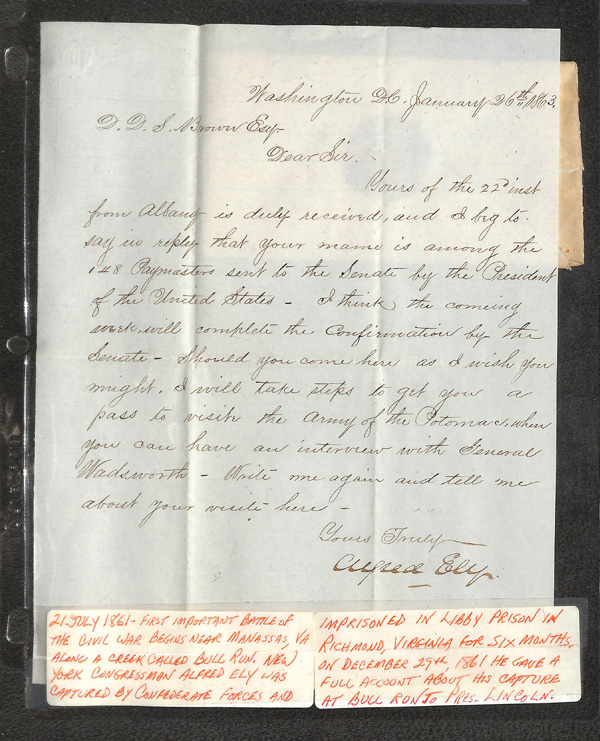 Washington D.C. January 26th 1863.
D. D. S. Brown Esqr
Dear Sir.
Yours of the 22d inst
from Albany is duly received, and I beg to
say in reply that your name is among the
148 Paymasters sent to the Senate by the President
of the United States - I think the coming
week will complete the Confirmation by the
Senate - Should you come here as I wish you
might, I will take steps to get you a
pass to visite the Army of the Potomac, when
you can have an interview with General
Wadsworth - Write me again and tell me
about your visite here -
Yours Truly
Alfred Ely.
21-JULY 1861 - FIRST IMPORTANT BATTLE OF
THE CIVIL WAR BEGINS NEAR MANASSAS, VA
ALONG A CREEK CALLED BULL RUN. NEW
YORK CONGRESSMAN ALFRED ELY WAS
CAPTURED BY CONFEDERATE FORCES AND
IMPRISONED IN LIBBY PRISON IN
RICHMOND, VIRGINIA FOR SIX MONTHS.
ON DECEMBER 29TH, 1861 HE GAVE A
FULL ACCOUNT ABOUT HIS CAPTURE
AT BULL RUN TO PRES. LINCOLN.